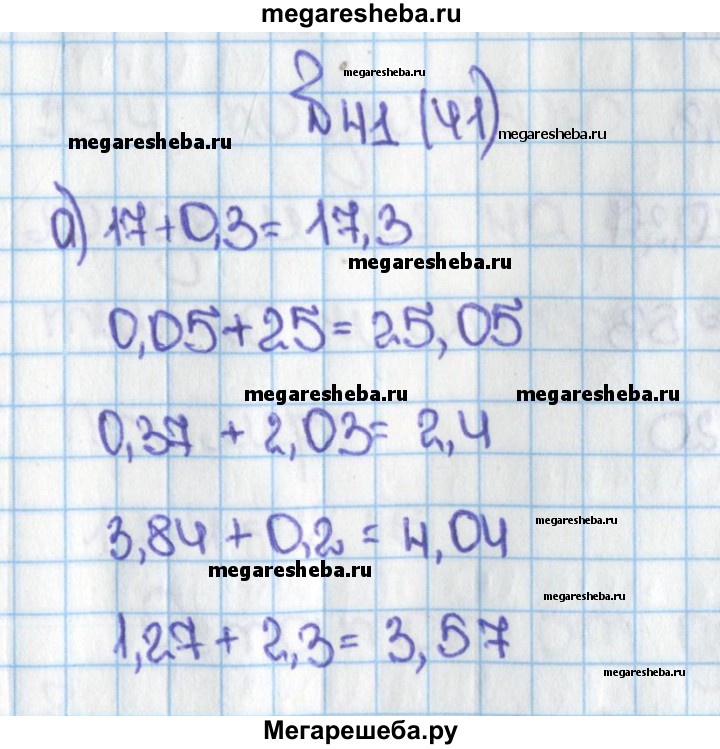 megaresheba.ru
megaresheba.ru
№ 41 (41)
megaresheba.ru
megaresheba.ru
а) 17+0,3= 17,3
megaresheba.ru
0,05+25=25,05
megaresheba.ru
megaresheba.ru
0,37 + 2,03= 2,4
megaresheba.ru
3,84 + 0,2 = 4,04
megaresheba.ru
megaresheba.ru
1,27+ 2,3= 3,57
megaresheba.ru
Мегарешеба.ру